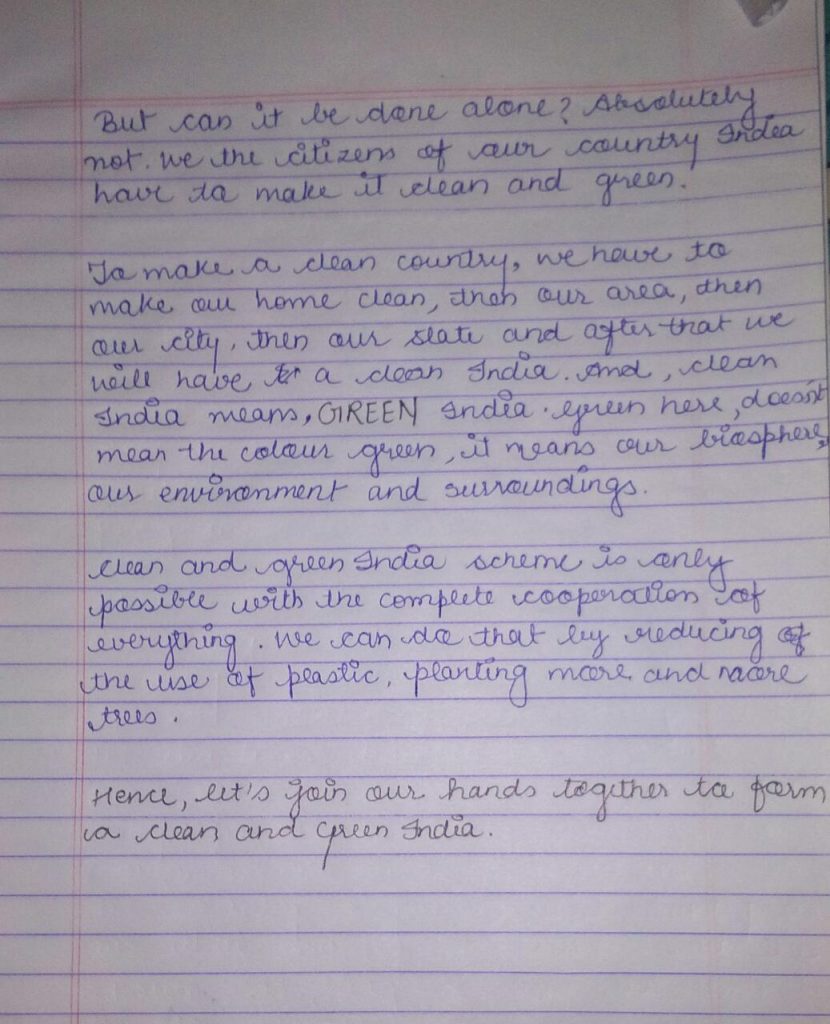 But can it be done alone? Absolutely
not. we the citizens of our country India
have to make it clean and green.
To make a clean country, we have to
make our home clean, then our area, then
our city, then our state and after that we
will have a clean India. And, clean
India means, GREEN India. Green here, doesn't
mean the colour green, it means our biosphere,
our environment and surroundings.
clean and green India scheme is only
possible with the complete cooperation of
everything. we can do that by reducing of
the use of plastic, planting more and more
trees.
Hence, let's join our hands together to form
a clean and green India.